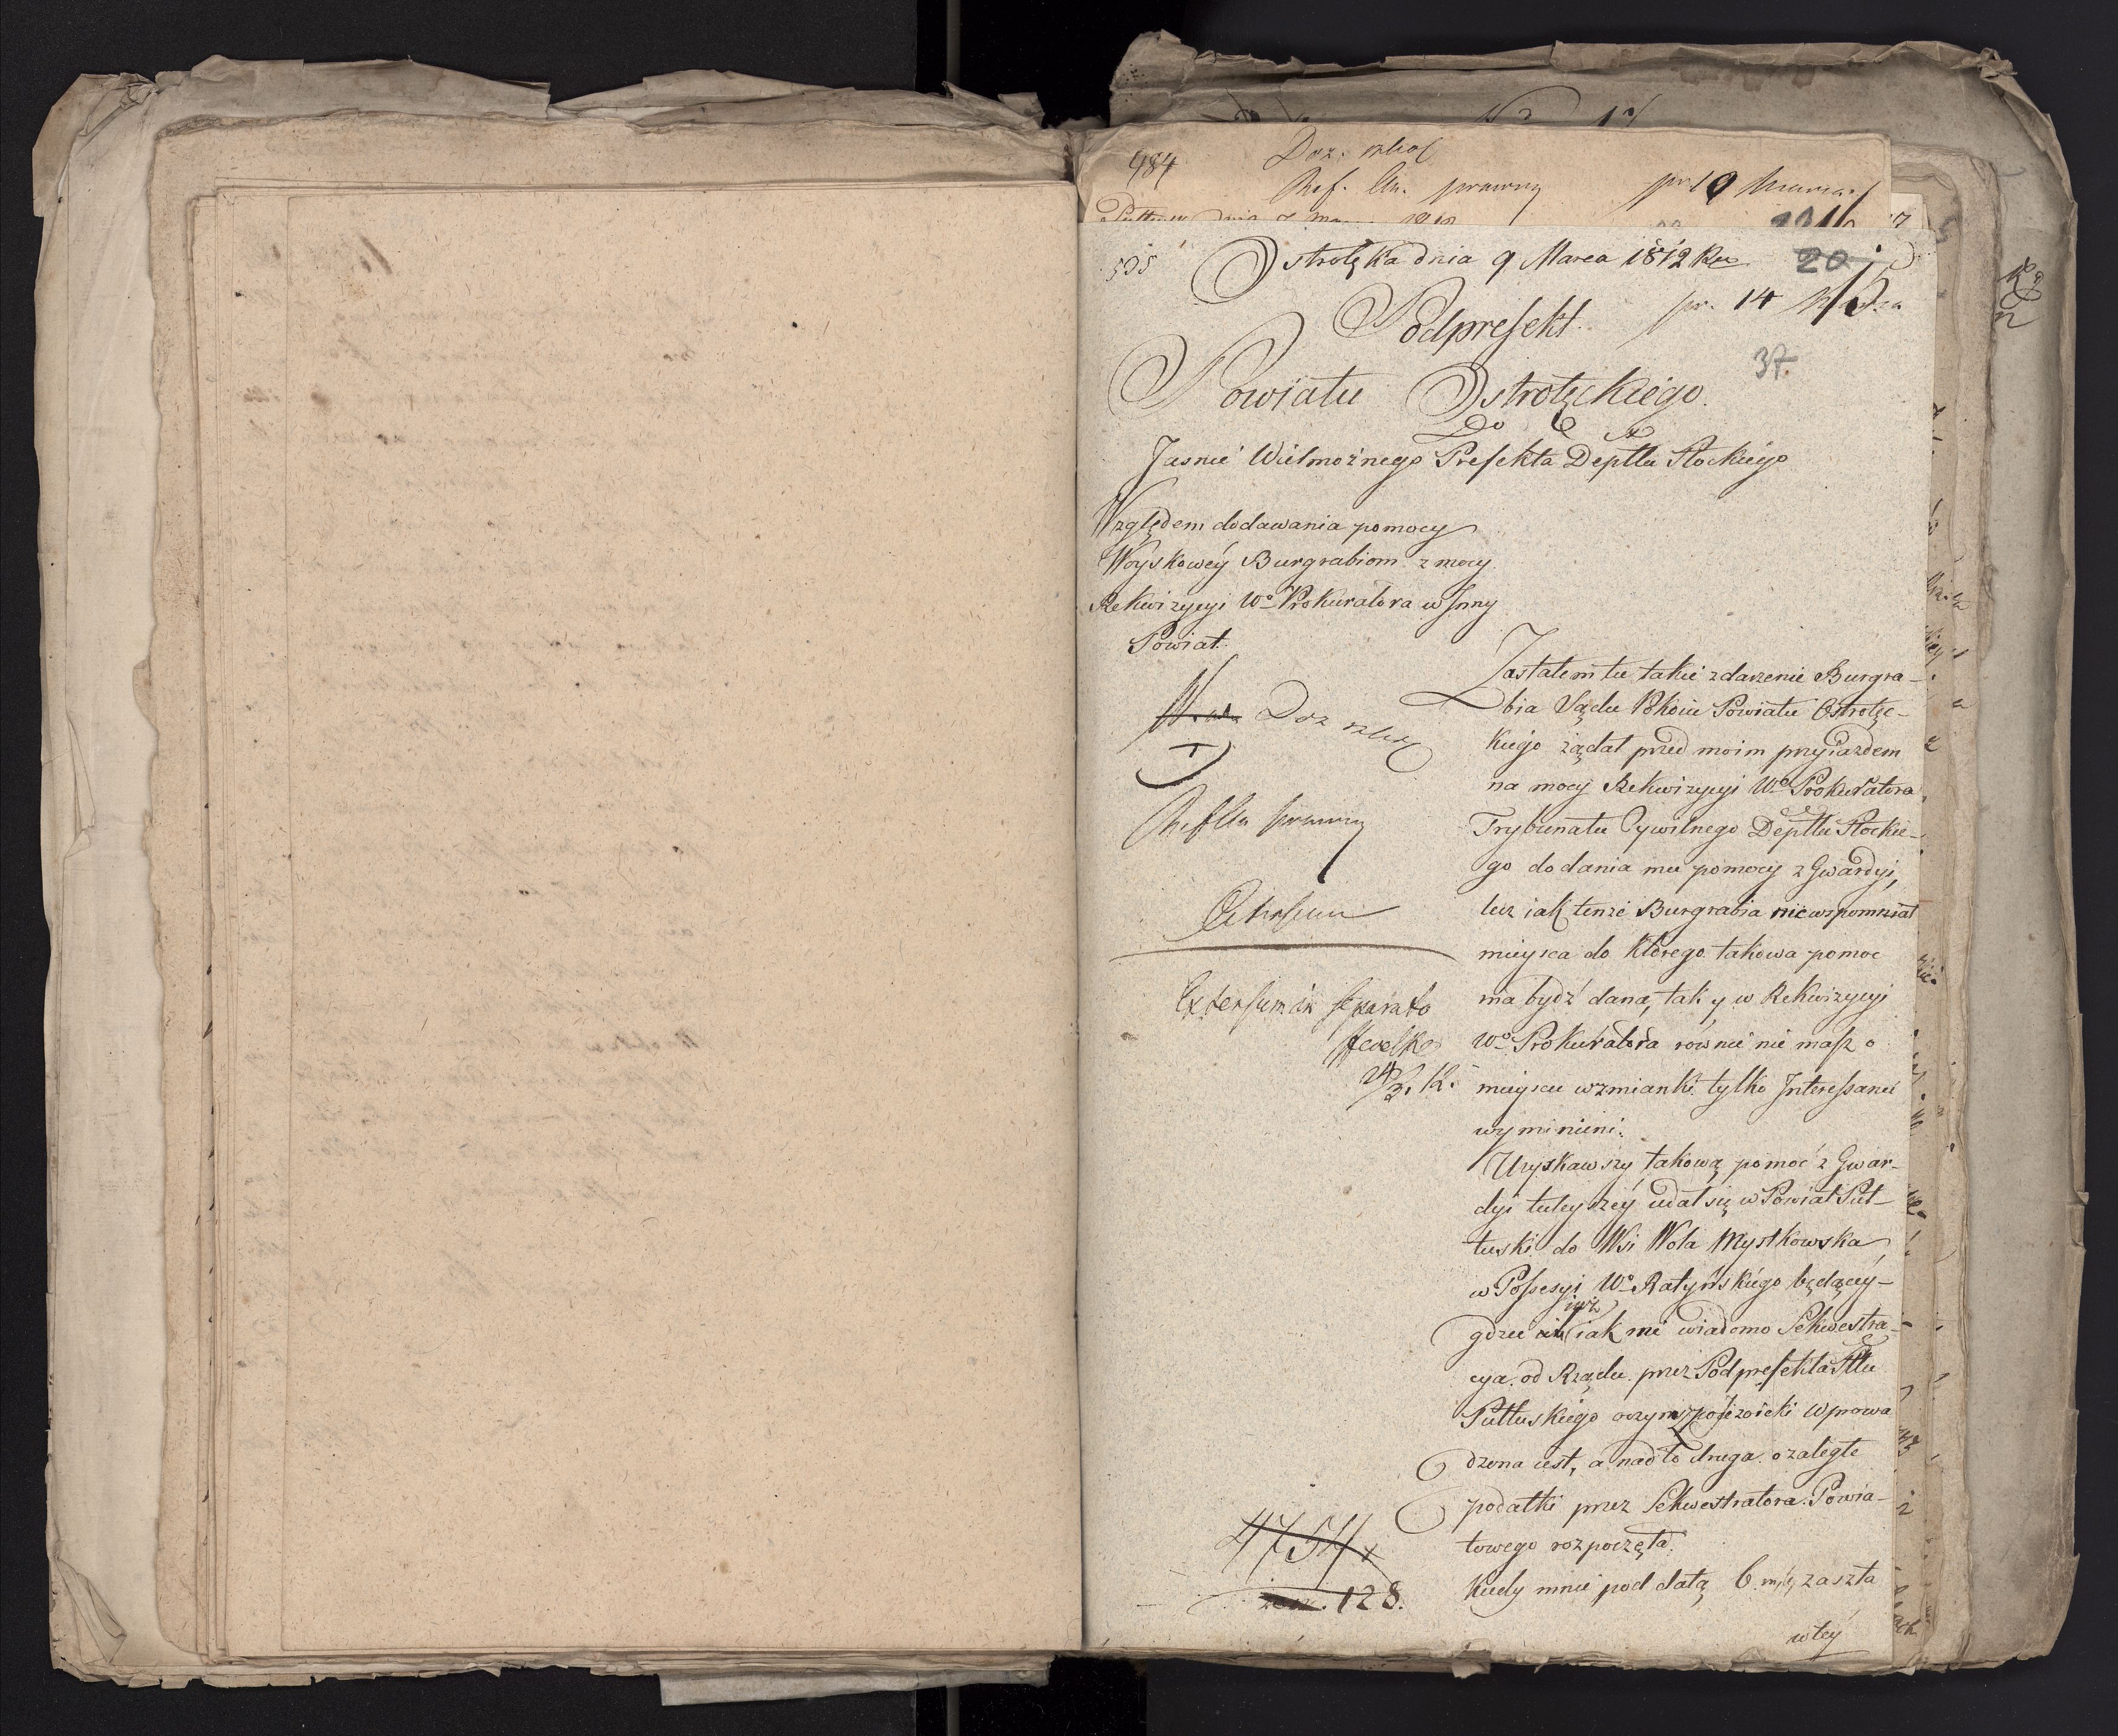 984
Ref. prawny
595
Ostrołęka dnia 9 Marca 1812 Ru
20
pr. 14 Marca
15
Podprefekt
37.
Powiatu Ostrołęckiego.
Do
Jasnie Wielmożnego Prefekta Depttu Płockiego
Względem dodawania pomocy
Woyskowey Burgrabiom z mocy
Rekwizycyi Wo Prokuratora w Jnny
Powiat.
Zastałem tu takie zdarzenie Burgra-
bia Sądu Pokoiu Powiatu Ostrołęc-
kiego żądał przed moim przyiazdem
na mocy Rekwizycyi Wo Prokuratora
Trybunału Cywilnego Depttu Płockie-
go dodania mu pomocy z Gwardyi,
lecz iak tenże Burgrabia niewspomniał
mieysca do którego takowa pomoc
ma bydź dana, tak y w Rekwizycyi
Wo Prokuratora równie nie masz o
mieyscu wzmianki tylko Interessanci
wymienieni.
Uzyskawszy takową pomoc z Gwar-
dyi tuteyszey udał się w Powiat Puł-
tuski do Wsi Wola Mystkowska
w Possesyi Wo Ratyńskiego będącey-
gdzie iuż iak mi wiadomo Sekwestra-
cya od Rządu przez Podprefekta Pttu
Pułtuskiego wprowa
dzona iest, a nadto druga o zaległe
podatki przez Sekwestratora Powia-
towego rozpoczęta.
Kiedy mnie pod datą 6. zaszła
w tey
Extensum in separato
24/3. 12.
4754
128.